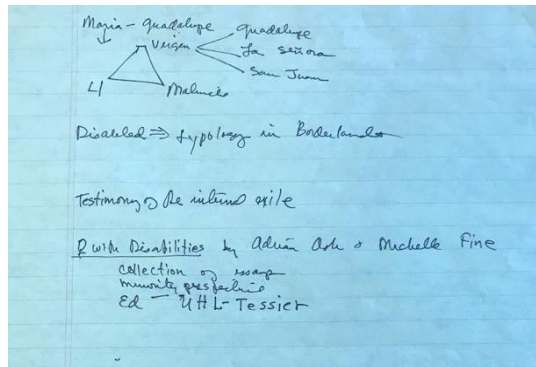 Maria - Guadalupe
Guadalupe
Virgen
La Señora
San Juan
Ll
Malinche
Disabled ⇒ typology in Borderlands
Testimony of the internal exile
with Disabilities by Adrian Ash & Michelle Fine
collection of essays
minority perspective
Ed — UHL-Tessier